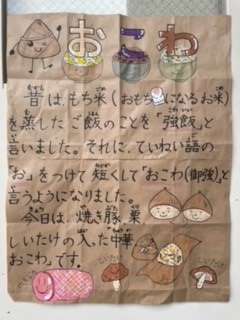 おこわ
昔は、もち米(おもちになるお米)
を蒸したご飯のことを「強飯」と
言いました。それに、ていねい語の
「お」をつけて短くして「おこわ(御強)」と
言うようになりました。
今日は、焼き豚、栗
しいたけの入った「中華
おこわ」です。